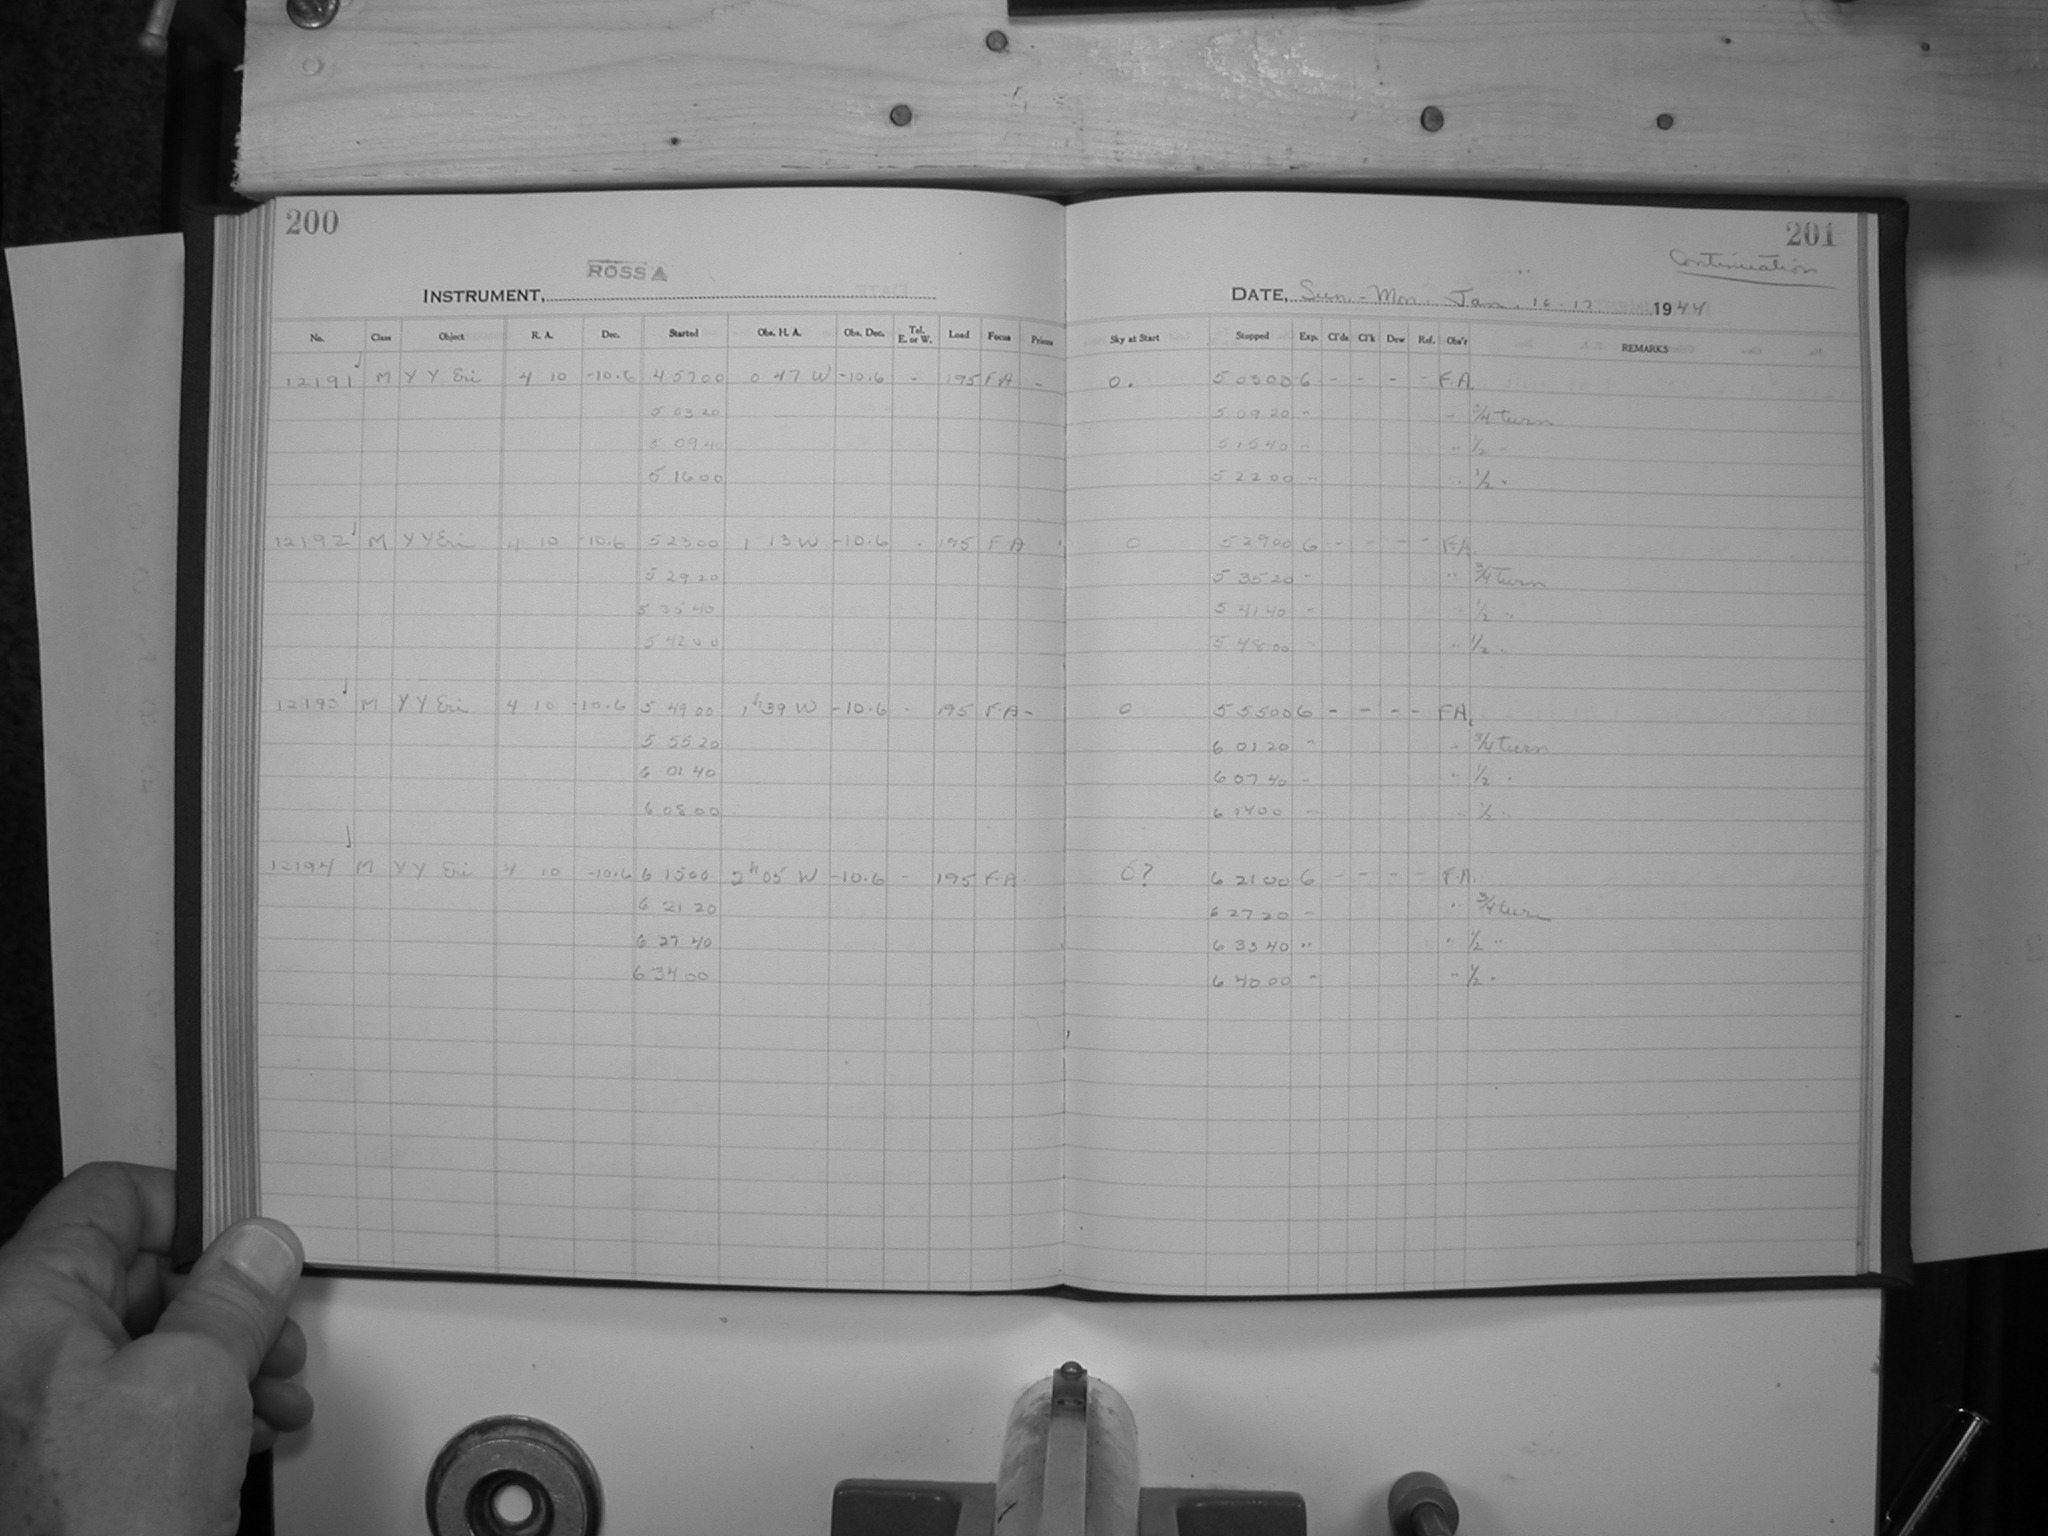 200
ROSS A
INSTRUMENT,
No. Class Object R. A. Dec. Started Obs. H. A. Obs. Dec. Tel. E. or W. Load Focus Prisms
12191 M Y Y Eri 4 10 -10.6 4 57 00 0 47 W -10.6 - 195 F.A -
5 03 20
5 09 40
5 16 00
12192 M Y Y Eri 4 10 -10.6 5 23 00 1 13 W -10.6 . 195 F A
5 29 20
5 35 40
5 42 00
12193 M Y Y Eri 4 10 -10.6 5 49 00 1h39 W -10.6 . 195 F.A -
5 55 20
6 01 40
6 08 00
12194 M Y Y Eri 4 10 -10.6 6 15 00 2h05 W -10.6 - 195 F.A.
6 21 20
6 27 40
6 34 00
201
Continuation
DATE, Sun.-Mon. Jan. 16-17 1944
Sky at Start Stopped Exp. Cl'ds Cl'k Dew Ref. Obs'r REMARKS
0. 5 03 00 6 - - - - F.A.
5 09 20 " " 3/4 turn
5 15 40 " " 1/2 "
5 22 00 " " 1/2 "
0 5 29 00 6 - - - - F.A.
5 35 20 " " 3/4 turn
5 41 40 " " 1/2 "
5 48 00 " " 1/2 "
0 5 55 00 6 - - - - F.A.
6 01 20 " " 3/4 turn
6 07 40 " " 1/2 "
6 14 00 " " 1/2 "
0? 6 21 00 6 - - - - F.A.
6 27 20 " " 3/4 turn
6 33 40 " " 1/2 "
6 40 00 " " 1/2 "